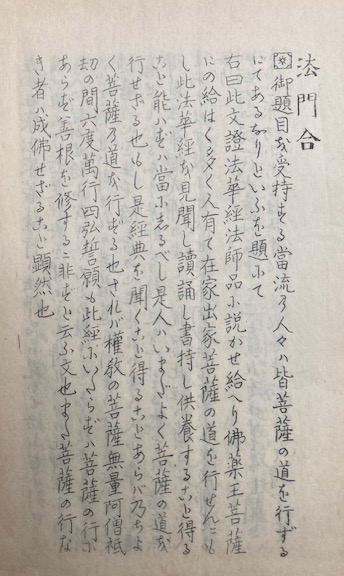 法門合
御題目を受持する當流の人々ハ皆菩薩の道を行ずる
にてあるなりといふを題にて
右曰此文證法華經法師品に説かせ給へり佛薬王菩薩
にの給はく多く人有て在家出家菩薩の道を行せんにも
し此法華經を見聞し讀誦し書持し供養することを得る
こと能ハずハ當に志るべし是人ハいまだよく菩薩の道を
行せざる也もし是經典を聞くことを得ることあらバ乃ちよ
く菩薩の道を行ずる也されバ權教の菩薩無量阿僧祇
劫の間六度萬行四弘誓願も此經にいたらずハ菩薩の行に
あらず善根を修するニ非ずと云ふ文也また菩薩の行な
き者ハ成佛せざること顕然也